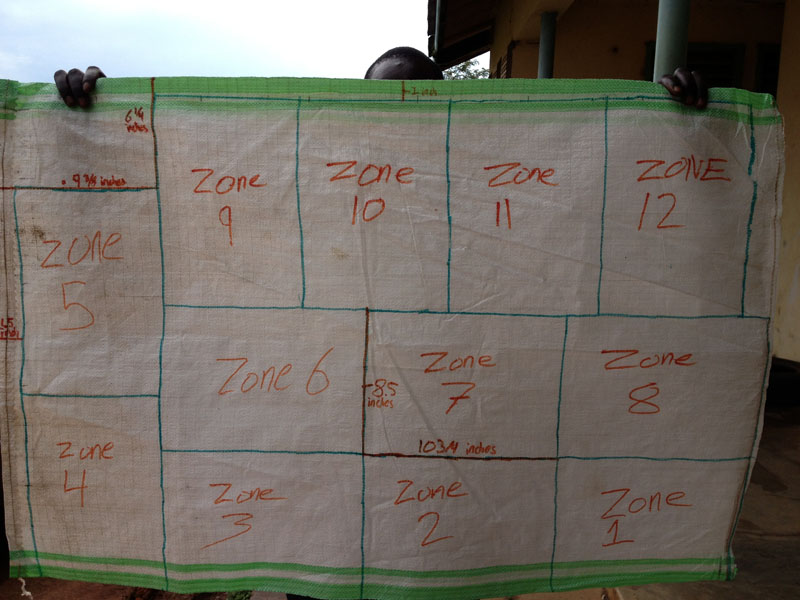 2 inch
6 1/4
inches
9 3/4 inches
Zone
9
Zone
10
Zone
11
ZONE
12
Zone
5
1.5
Zone 6
8.5
inches
Zone
7
Zone
8
10 3/4 inches
Zone
4
Zone
3
Zone
2
Zone
1